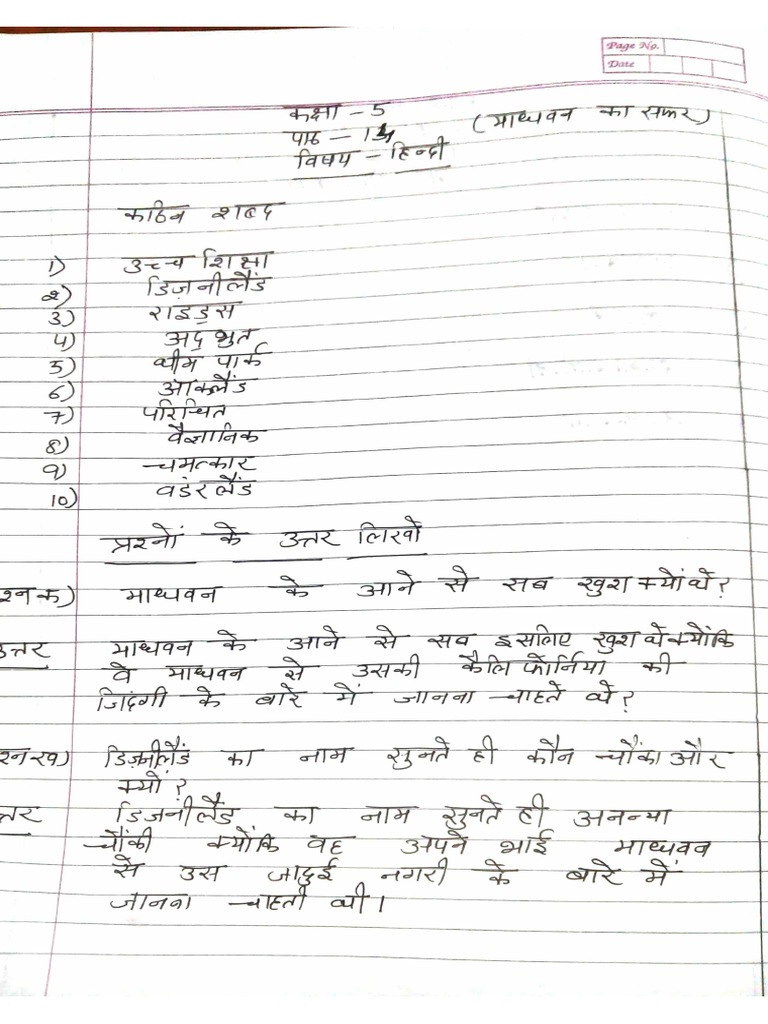 Page No.
Date
कक्षा - 5
पाठ - 14 (माधवन का सफर)
विषय - हिन्दी
कठिन शब्द
1) उच्च शिक्षा
2) डिज़नीलैंड
3) राइड्स
4) अद्भुत
5) थीम पार्क
6) ऑकलैंड
7) परिचित
8) वैज्ञानिक
9) चमत्कार
10) वडंरलैंड
प्रश्नों के उत्तर लिखो
श्न क) माधवन के आने से सब खुश क्यों थे?
उत्तर माधवन के आने से सब इसलिए खुश थे क्योंकि
वे माधवन से उसकी कैलिफोर्निया की
जिंदगी के बारे में जानना चाहते थे?
श्न ख) डिज़नीलैंड का नाम सुनते ही कौन चौंका और
क्यों?
त्तर डिज़नीलैंड का नाम सुनते ही अनन्या
चौंकी क्योंकि वह अपने भाई माधवन
से उस जादुई नगरी के बारे में
जानना चाहती थी।